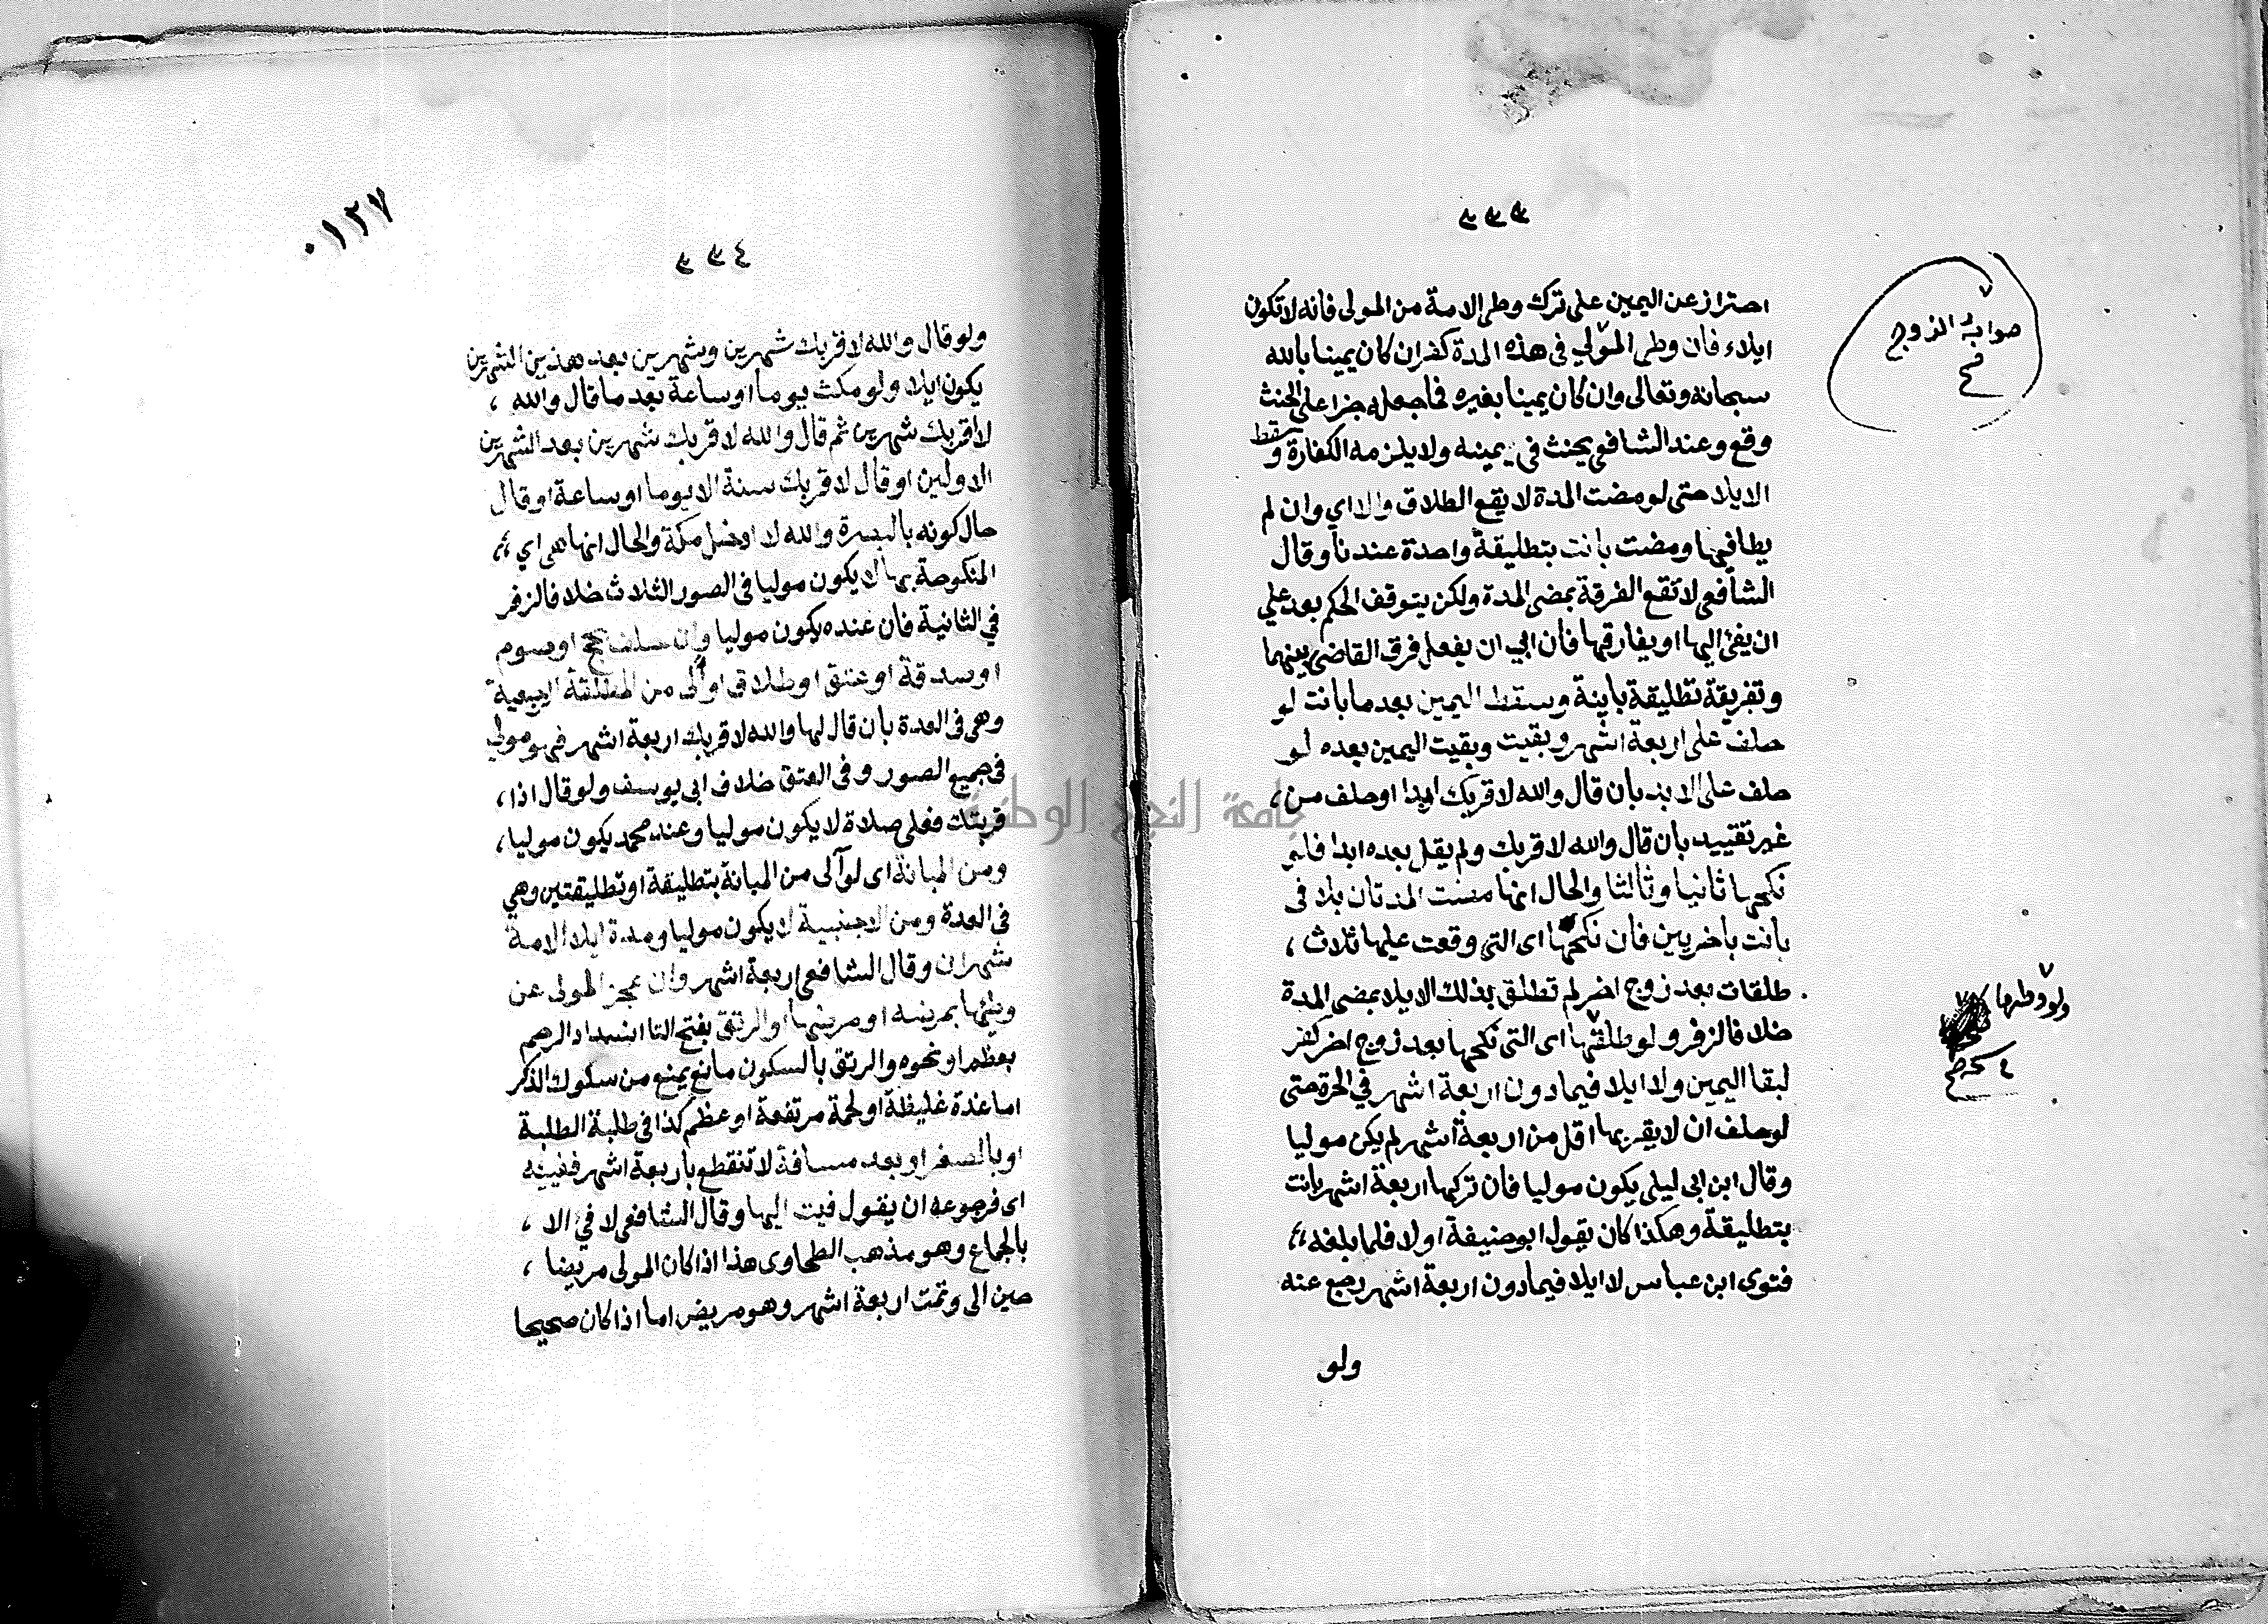 ٣٣٣
احتراز عن اليمين على ترك وطى الامة من المولى فانه لا تكون
ايلاء فان وطى المولى في هذه المدة كفر ان كان يمينا بالله
سبحانه وتعالى وان كان يمينا بغيره فما جعله جزا على الحنث
وقع وعند الشافعي يحنث في يمينه ولا يلزمه الكفارة وسقط
الايلا حتى لو مضت المدة لا يقع الطلاق والا اي وان لم
يطا فيها ومضت بانت بتطليقة واحدة عندنا وقال
الشافعي لا تقع الفرقة بمضى المدة ولكن يتوقف الحكم بعد علي
ان يفئ اليها او يفارقها فان ابي ان يفعل فرق القاضى بينهما
وتفريقة تطليقة باينة وسقط اليمين بعد ما بانت لو
حلف على اربعة اشهر وبقيت وبقيت اليمين بعده لو
حلف على الابد بان قال والله لا قربك ابدا او حلف من،
غير تقييد بان قال والله لا قربك ولم يقل بعده ابدا فلو
نكحها ثانيا وثالثا والحال انها مضت المدتان بلا فى
بانت باخريين فان نكحها اى التي وقعت عليها ثلاث،
طلقات بعد زوج اخر لم تطلق بذلك الايلا بمضى المدة
خلافا لزفر ولو طلقها اى التى نكحها بعد زوج اخر كفر
لبقا اليمين ولا ايلا فيما دون اربعة اشهر في الحرة حتى
لو حلف ان لا يقربها اقل من اربعة اشهر لم يكن موليا
وقال ابن ابى ليلى يكون موليا فان تركها اربعة اشهر بانت
بتطليقة وهكذا كان يقول ابو حنيفة اولا فلما بلغه،،
فتوى ابن عباس لا ايلا فيما دون اربعة اشهر رجع عنه
ولو
صوابه الزوج
ولو وطها
صح
٠١٢٧
٣٣٤
ولو قال والله لا قربك شهرين وشهرين بعد هذين الشهرين
يكون ايلا ولو مكث يوما او ساعة بعد ما قال والله،
لا قربك شهرين ثم قال والله لا قربك شهرين بعد الشهرين
الاولين او قال لا قربك سنة الا يوما او ساعة او قال
حال كونه بالبصرة والله لا ادخل مكة والحال انها هى اي،،
المنكوحة بها لا يكون موليا في الصور الثلاث خلافا لزفر
في الثانية فان عنده يكون موليا وان حلف بحج او صوم
او صدقة او عتق او طلاق او آلى من المطلقة الرجعية
وهى فى العدة بان قال لها والله لا قربك اربعة اشهر فهو مولي
فى جميع الصور وفى العتق خلاف ابى يوسف ولو قال اذا،
قربتك فعلي صلاة لا يكون موليا وعند محمد يكون موليا،
ومن المبانة اى لو آلى من المبانة بتطليقة او تطليقتين وهي
فى العدة ومن الاجنبية لا يكون موليا ومدة ايلا الامة
شهران وقال الشافعى اربعة اشهر وان عجز المولى عن
وطئها بمرضه او مرضها او الرتق بفتح التا انسداد الرحم
بعظم او نحوه والرتق بالسكون مانع يمنع من سكوك الذكر
اما غدة غليظة او لحمة مرتفعة او عظم كذا في طلبة الطلبة
او بالصغر او بعد مسافة لا تنقطع باربعة اشهر ففيئه
اى فرجوعه ان يقول فيت اليها وقال الشافعى لا فئ الا،
بالجماع وهو مذهب الطحاوى هذا اذا كان المولى مريضا،
حين الى وتمت اربعة اشهر وهو مريض اما اذا كان صحيحا
جامعة النجاح الوطنية